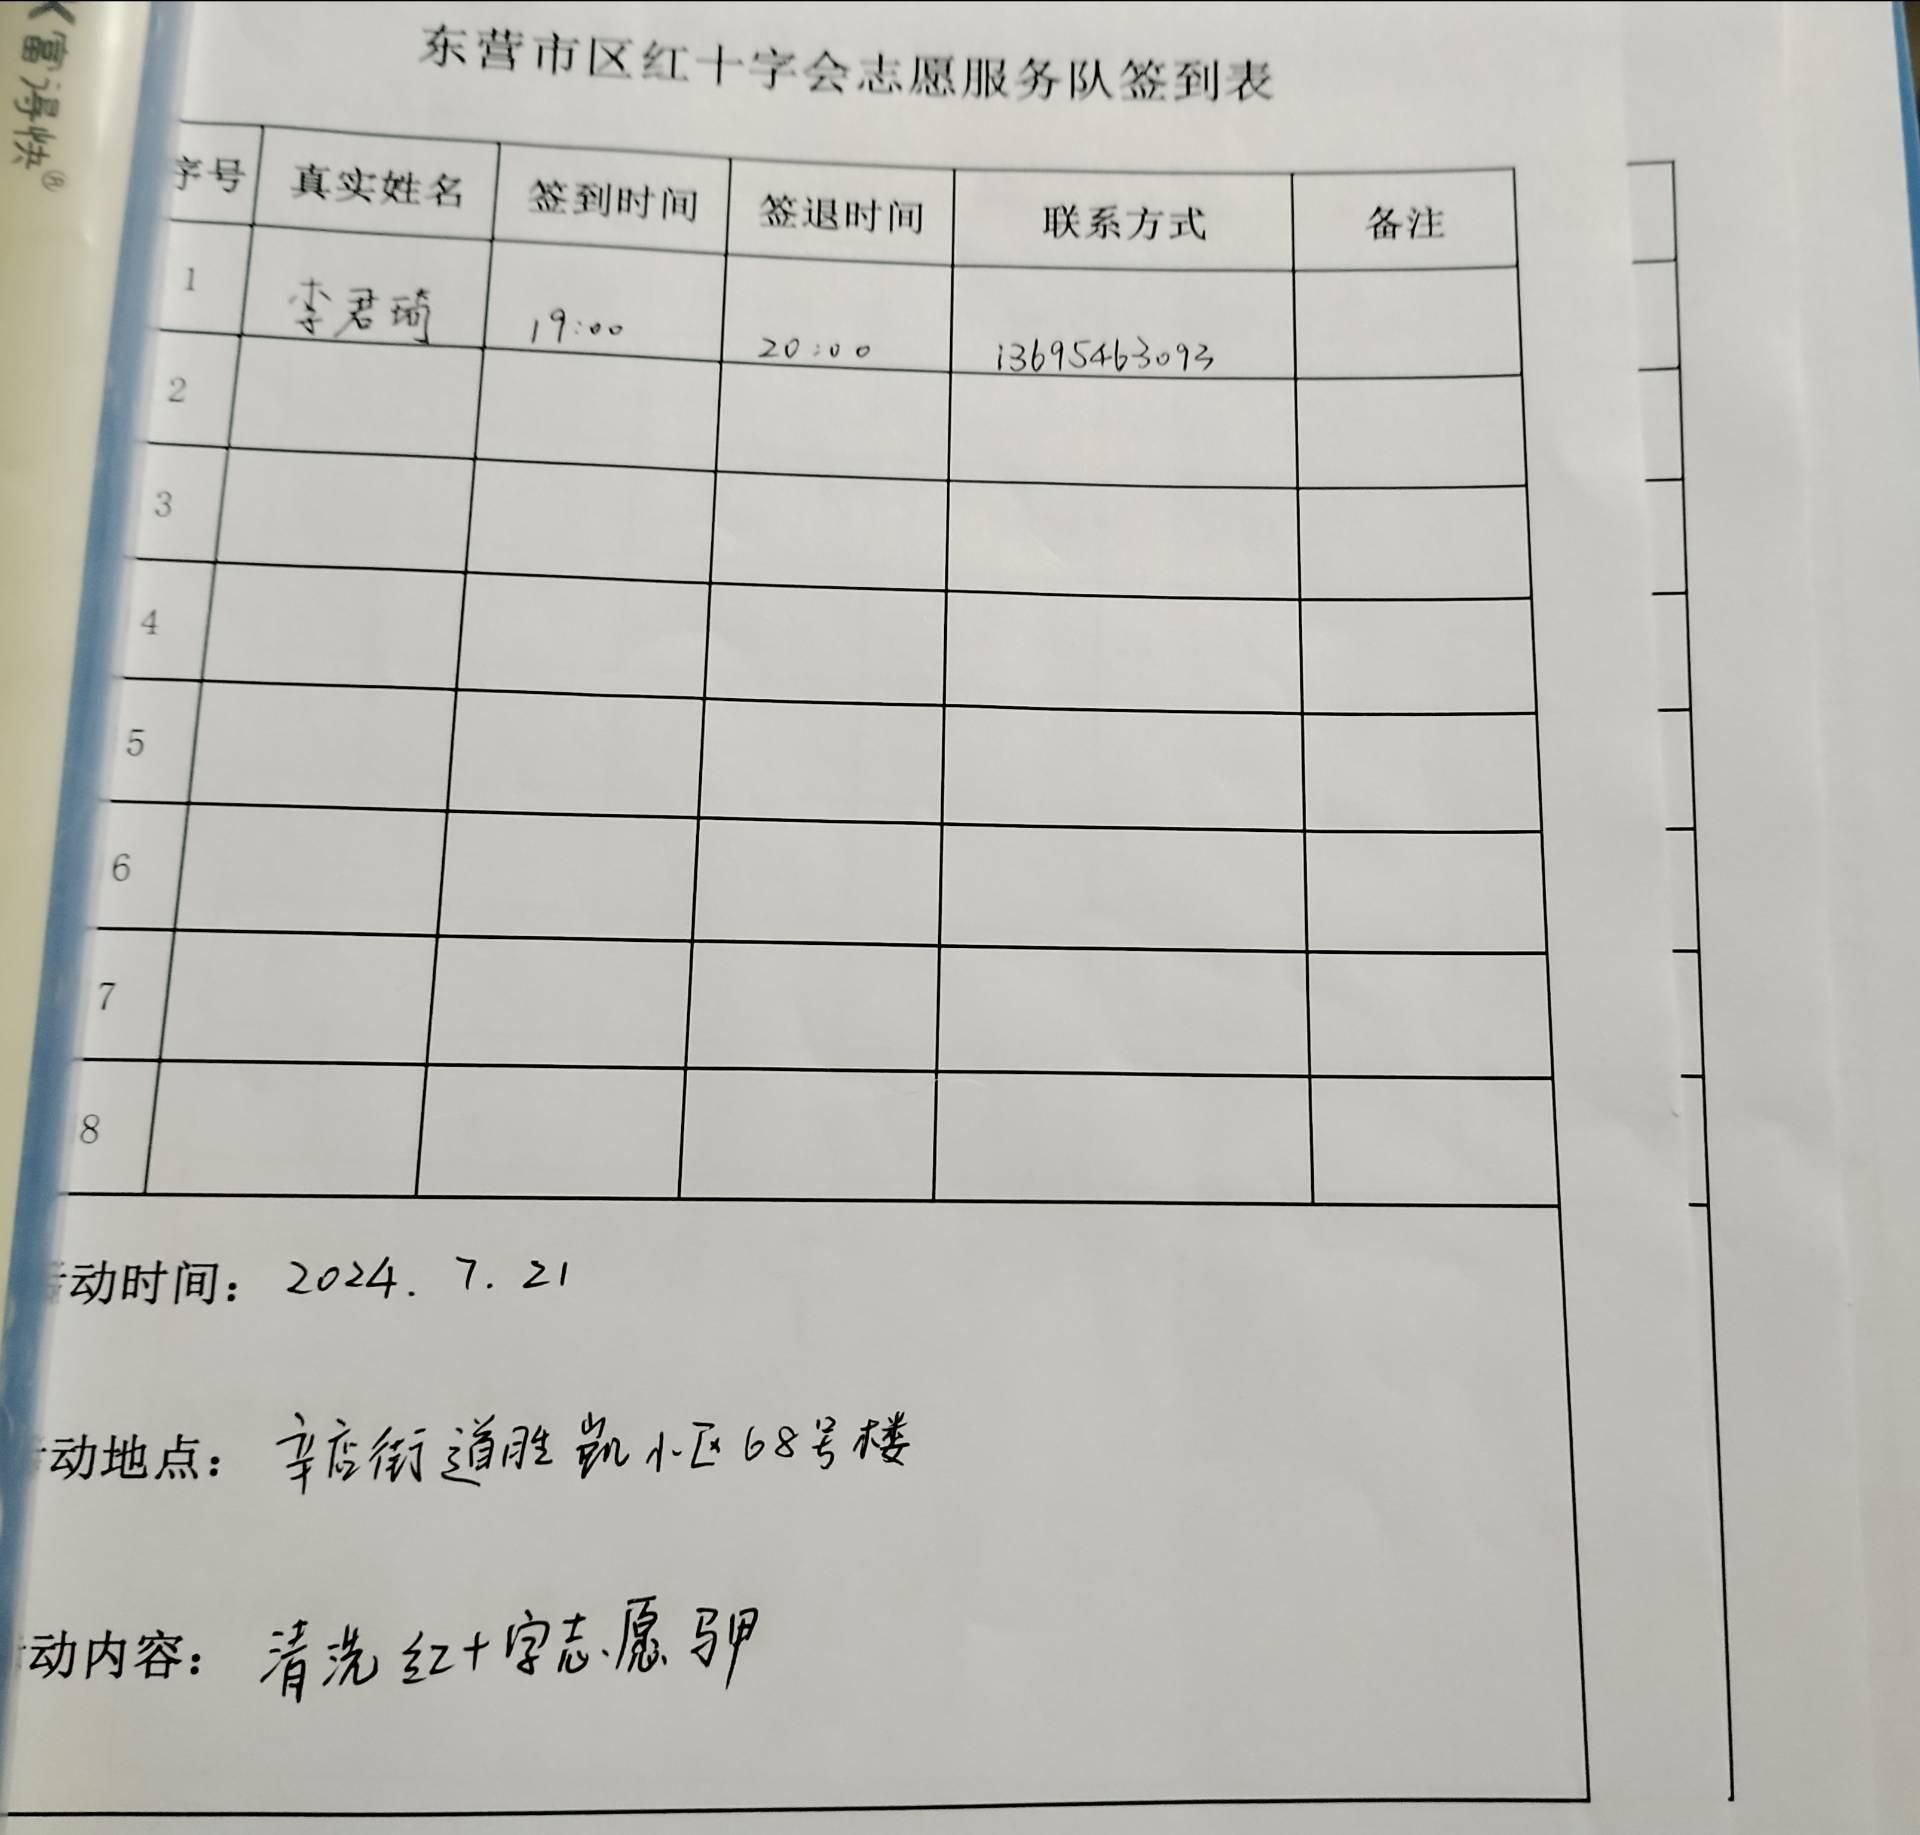 富得快®
东营市区红十字会志愿服务队签到表
序号 真实姓名 签到时间 签退时间 联系方式 备注
1 李君琦 19:00 20:00 13695463093
2
3
4
5
6
7
8
活动时间： 2024. 7. 21
活动地点： 辛店街道胜凯小区68号楼
活动内容： 清洗红十字志愿马甲